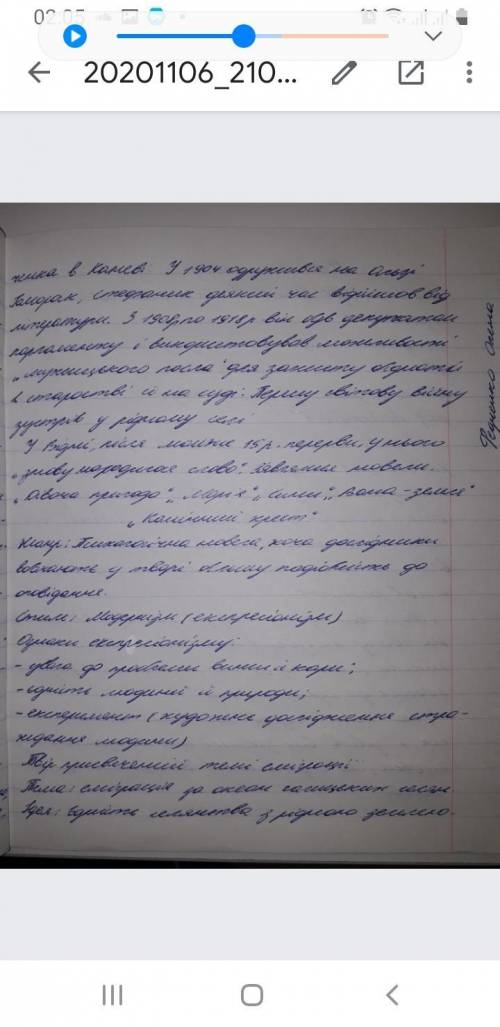 02:05
20201106_210...
жика в Каневі. У 1904 одружився на Ользі
Гаморак, стефаник деякий час відійшов від
літератури. З 1908р по 1918р він був депутатом
парламенту і використовував можливості
„мужицького посла" для захисту бідноти
в старостві й на суді. Першу світову війну
зустрів у рідному селі
У Відні, після майже 15 р. перерви, у нього
„знову народилося слово". новели.
„Дівоча пригода", „Марія", „Сини", „Вона-земля"
„Камінний хрест"
Жанр: Психологічна новела, хоча дослідники
вбачають у творі більшу подібність до
оповідання.
Стиль: Модернізм (експресіонізм)
Ознаки експресіонізму:
- увага до проблеми вини й кари;
- єдність людини й природи;
- експеримент (художнє дослідження страждання
людини)
Твір присвячений темі еміграції
Тема: еміграція за океан галицьких селян
Ідея: Єдність селянства з рідною землею.